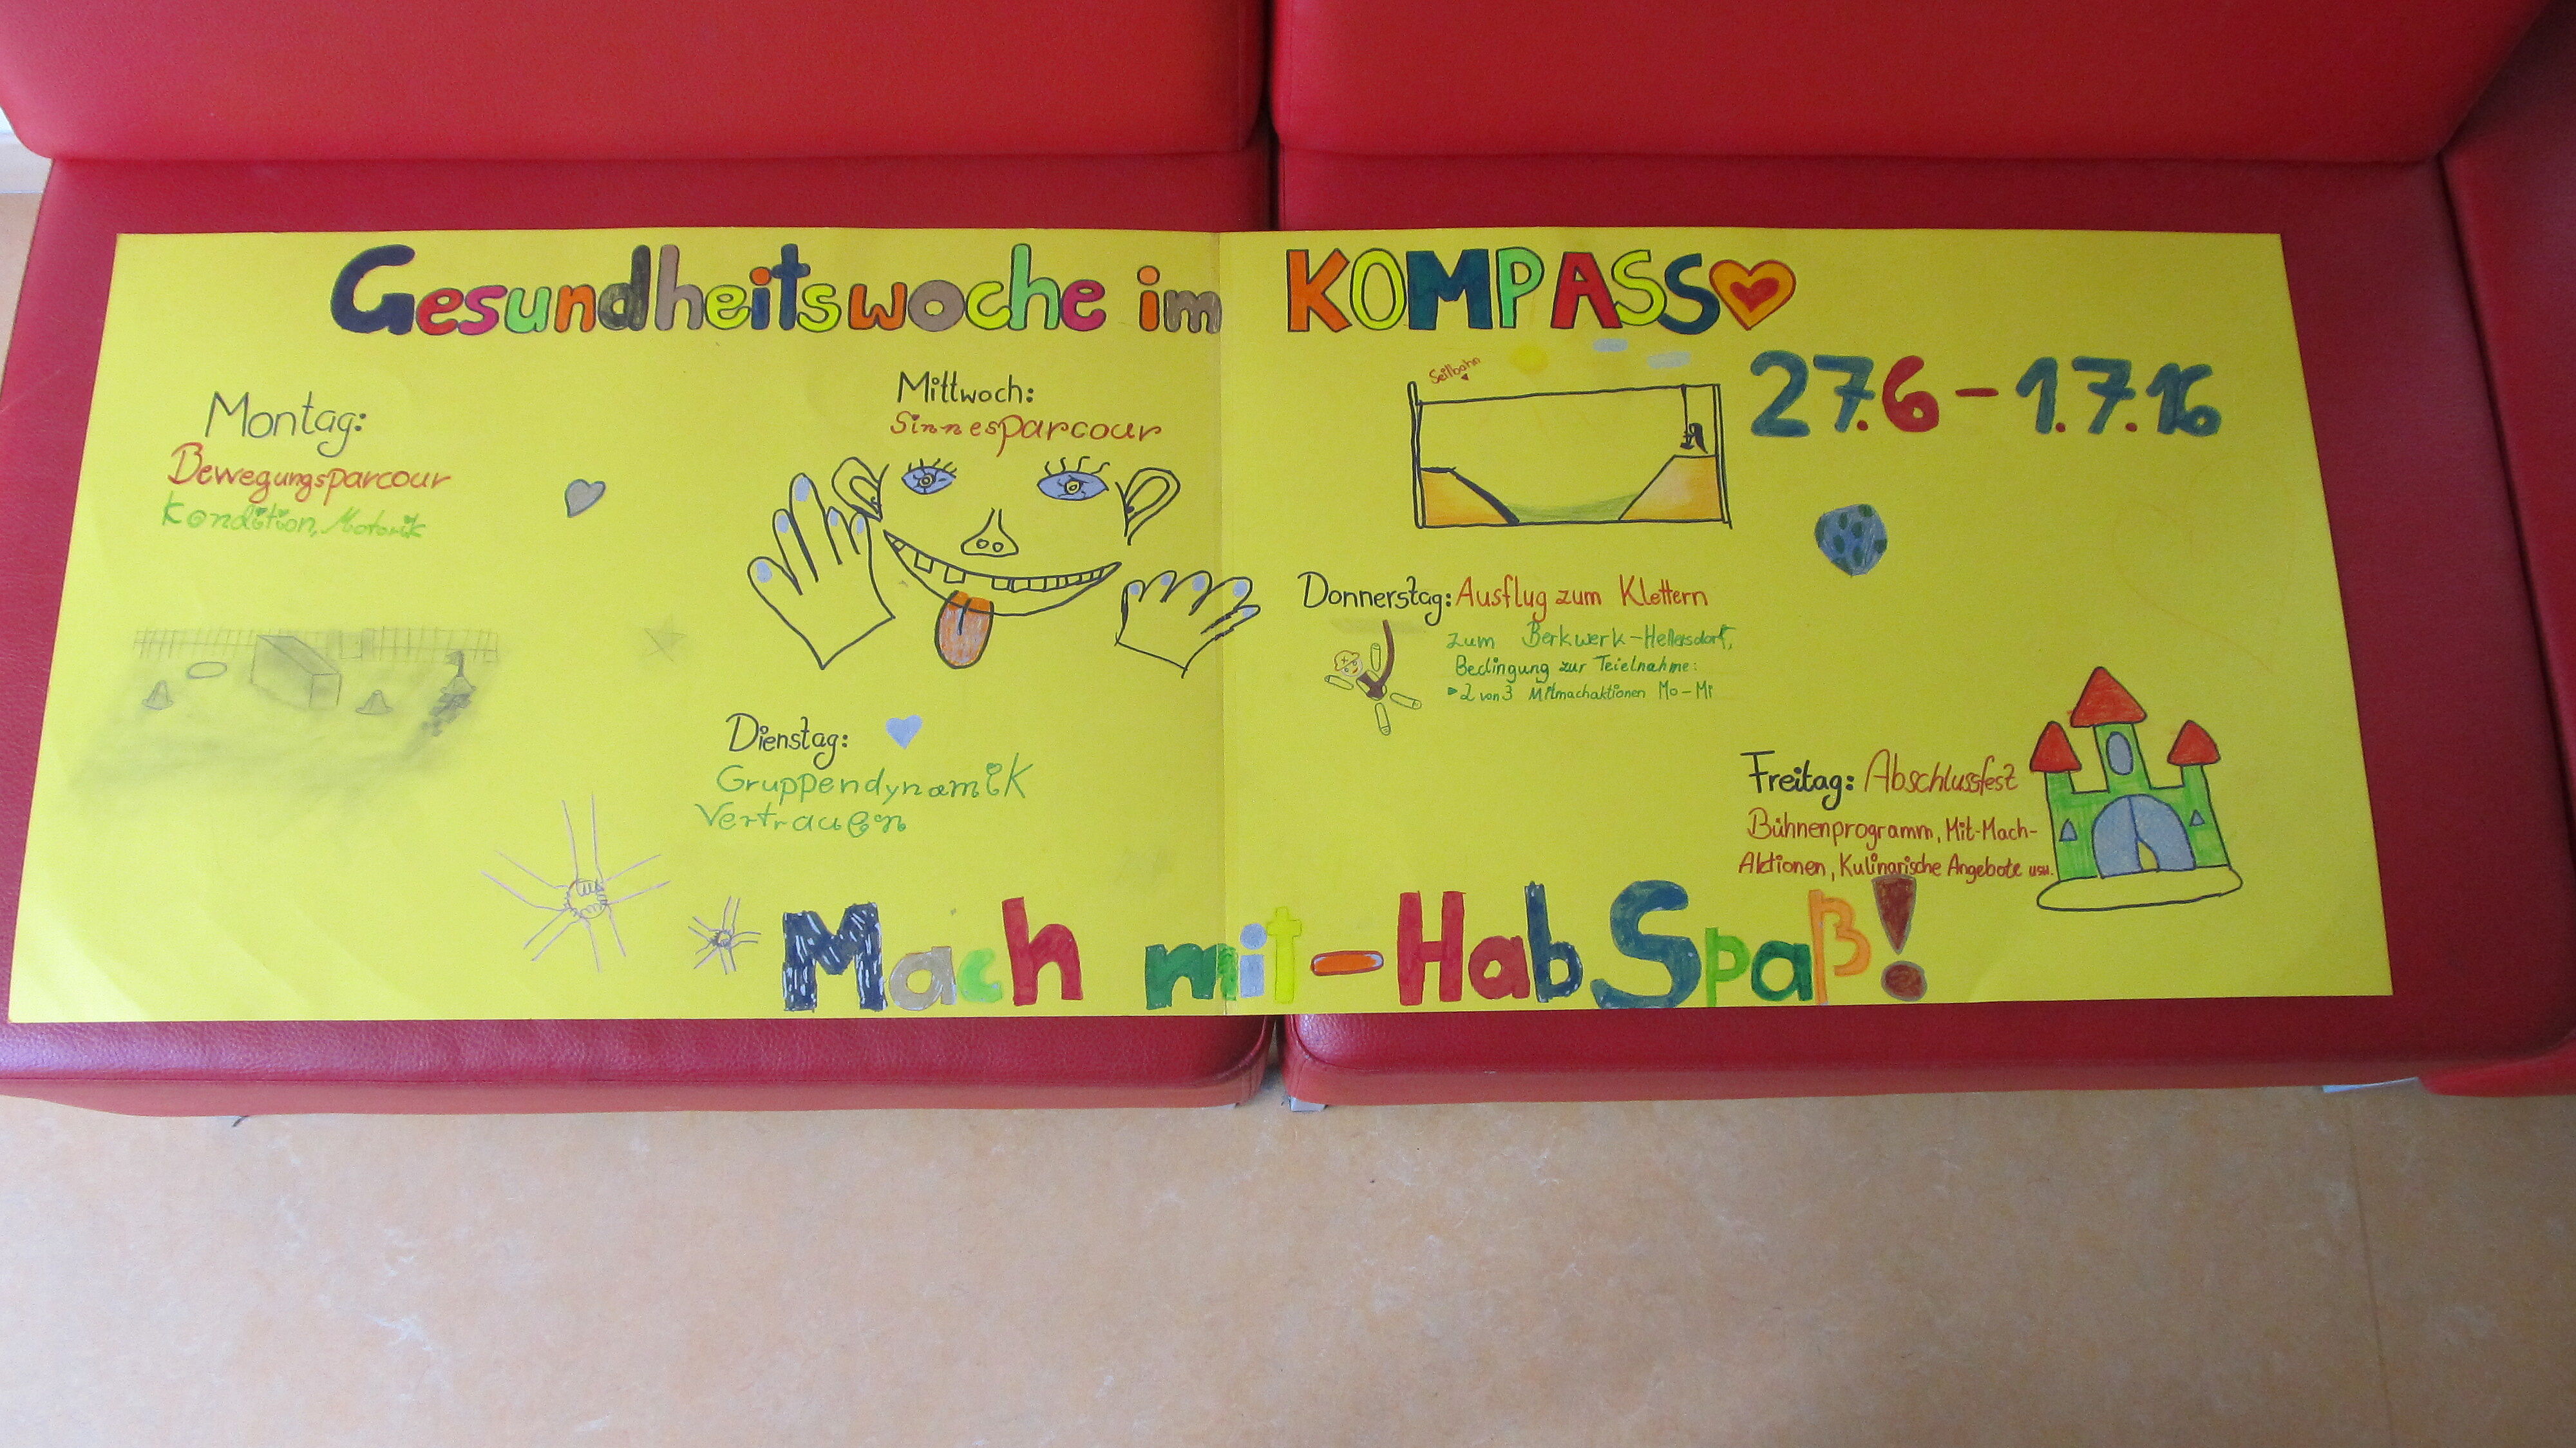 Gesundheitswoche im KOMPASS
27.6-1.7.16
Montag:
Bewegungsparcour
Kondition, Motorik
Mittwoch:
Sinnesparcour
Dienstag:
Gruppendynamik
Vertrauen
Seilbahn
Donnerstag: Ausflug zum Klettern
zum Berkwerk-Hellersdorf,
Bedingung zur Teielnahme:
2 von 3 Mitmachaktionen Mo-Mi
Freitag: Abschlussfest
Bühnenprogramm, Mit-Mach-
Aktionen, Kulinarische Angebote usw.
Mach mit-Hab Spaß!